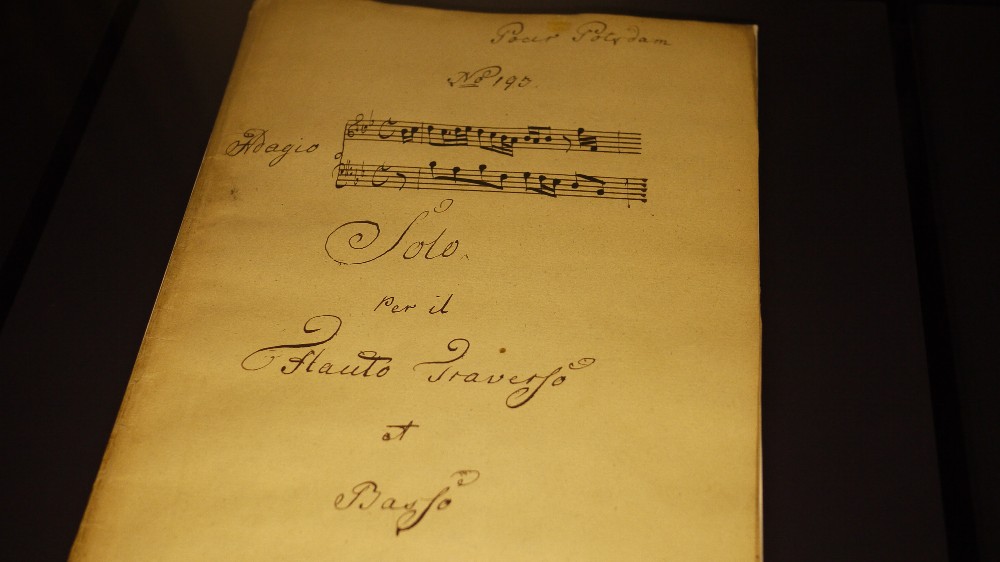 Pour Potsdam
No 193.
Adagio
Solo.
Per il
Flauto Traverso
et
Basso